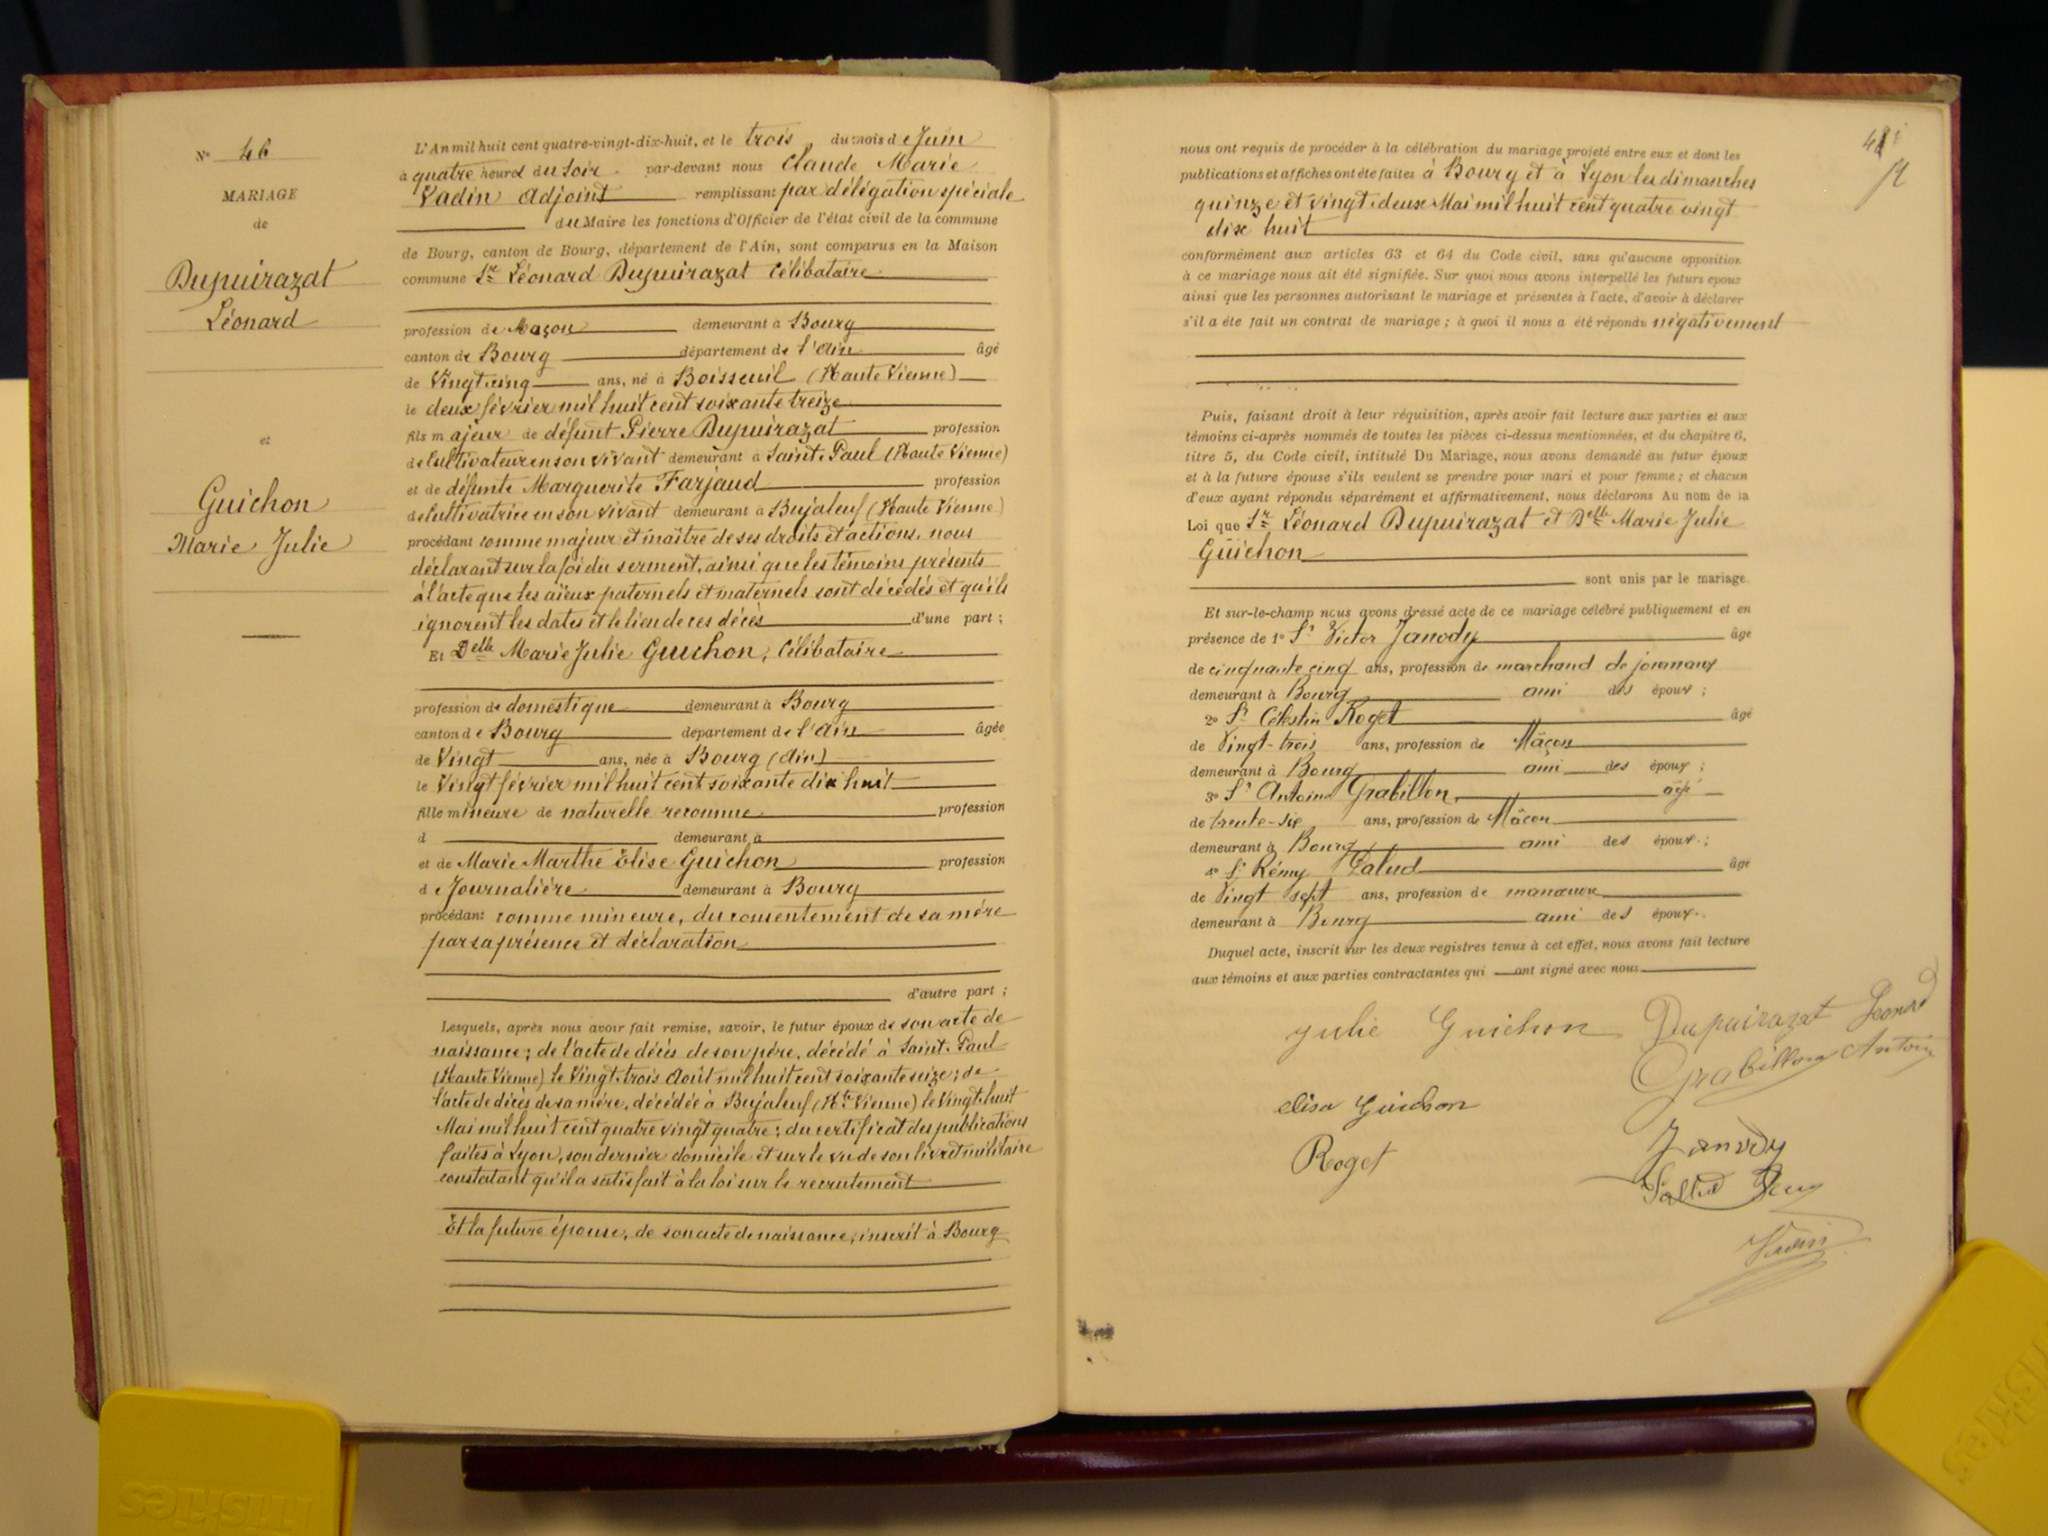 N° 46
MARIAGE
de
Dupuirazat
Léonard
et
Guichon
Marie Julie
L'An mil huit cent quatre-vingt-dix-huit, et le trois du mois de Juin
à quatre heures du Soir par-devant nous Claude Marie
Vadin Adjoint remplissant par délégation spéciale
du Maire les fonctions d'Officier de l'état civil de la commune
de Bourg, canton de Bourg, département de l'Ain, sont comparus en la Maison
commune Sr Léonard Dupuirazat Célibataire
profession de Maçon demeurant à Bourg
canton de Bourg département de l'Ain âgé
de Vingt cinq ans, né à Boisseuil (Haute Vienne)
le deux février mil huit cent soixante treize
fils majeur de défunt Pierre Dupuirazat profession
de Cultivateur en son vivant demeurant à Saint-Paul (Haute Vienne)
et de défunte Marguerite Farjaud profession
de Cultivatrice en son vivant demeurant à Bujaleuf (Haute Vienne)
procédant comme majeur et maître de ses droits et actions, nous
déclarant sur la foi du serment, ainsi que les témoins présents
à l'acte que les aïeux paternels et maternels sont décédés et qu'ils
ignorent les dates et le lieu de ces décès d'une part ;
Et Delle Marie Julie Guichon, Célibataire
profession de domestique demeurant à Bourg
canton de Bourg département de l'Ain âgée
de Vingt ans, née à Bourg (Ain)
le Vingt février mil huit cent soixante dix huit
fille mineure de naturelle reconnue profession
d demeurant à
et de Marie Marthe Elise Guichon profession
de Journalière demeurant à Bourg
procédant comme mineure, du consentement de sa mère
par sa présence et déclaration
d'autre part ;
Lesquels, après nous avoir fait remise, savoir, le futur époux de son acte de
naissance ; de l'acte de décès de son père, décédé à Saint-Paul
(Haute Vienne) le Vingt-trois Août mil huit cent soixante seize ; de
l'acte de décès de sa mère, décédée à Bujaleuf (Hte Vienne) le Vingt-huit
Mai mil huit cent quatre vingt quatre ; du certificat des publications
faites à Lyon, son dernier domicile et sur le vu de son livret militaire
constatant qu'il a satisfait à la loi sur le recrutement
Et la future épouse, de son acte de naissance, inscrit à Bourg
nous ont requis de procéder à la célébration du mariage projeté entre eux et dont les
publications et affiches ont été faites à Bourg et à Lyon les dimanches
quinze et vingt-deux Mai mil huit cent quatre vingt
dix huit
conformément aux articles 63 et 64 du Code civil, sans qu'aucune opposition
à ce mariage nous ait été signifiée. Sur quoi nous avons interpellé les futurs époux
ainsi que les personnes autorisant le mariage et présentes à l'acte, d'avoir à déclarer
s'il a été fait un contrat de mariage ; à quoi il nous a été répondu négativement
Puis, faisant droit à leur réquisition, après avoir fait lecture aux parties et aux
témoins ci-après nommés de toutes les pièces ci-dessus mentionnées, et du chapitre 6,
titre 5, du Code civil, intitulé Du Mariage, nous avons demandé au futur époux
et à la future épouse s'ils veulent se prendre pour mari et pour femme ; et chacun
d'eux ayant répondu séparément et affirmativement, nous déclarons Au nom de la
Loi que Sr Léonard Dupuirazat et Delle Marie Julie
Guichon
sont unis par le mariage.
Et sur-le-champ nous avons dressé acte de ce mariage célébré publiquement et en
présence de 1° Sr Victor Janody âgé
de cinquante cinq ans, profession de marchand de journaux
demeurant à Bourg ami des époux ;
2° Sr Célestin Roget âgé
de Vingt-trois ans, profession de Mâçon
demeurant à Bourg ami des époux ;
3° Sr Antoine Grabillon, âgé
de trente-six ans, profession de Mâcon
demeurant à Bourg ami des époux ;
4° Sr Rémy Salud âgé
de Vingt sept ans, profession de manœuvre
demeurant à Bourg ami des époux.
Duquel acte, inscrit sur les deux registres tenus à cet effet, nous avons fait lecture
aux témoins et aux parties contractantes qui ont signé avec nous
Julie Guichon Dupuirazat Leonard
Grabillon Antoin
elisa Guichon
Janody
Roget
Vadin